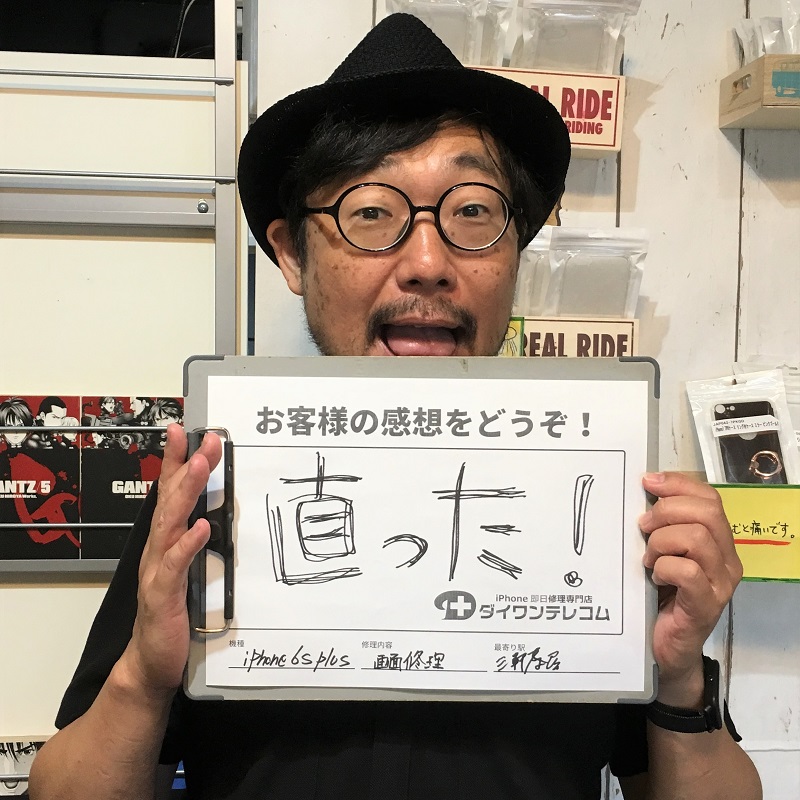 REAL RIDE
RIDING
REAL RIDE
お客様の感想をどうぞ！
直った!
iPhone 即日修理専門店
ダイワンテレコム
機種
iPhone 6s plus
修理内容
画面修理
最寄り駅
三軒茶屋
GANTZ 5
GANTZ
むと痛いです。